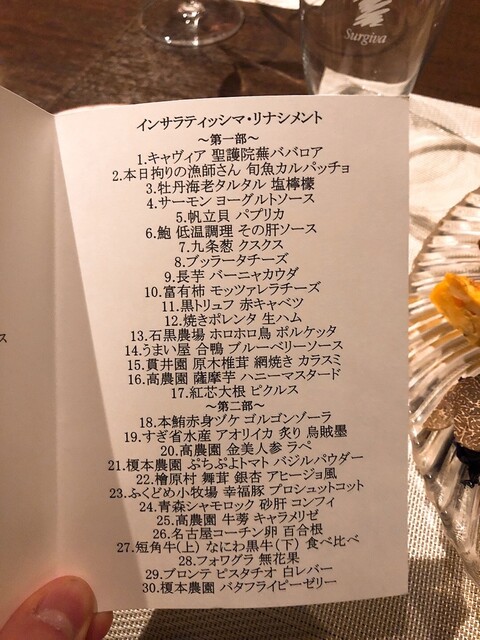 Surgiva
インサラティッシマ・リナシメント
～第一部～
1.キャヴィア 聖護院蕪ババロア
2.本日拘りの漁師さん 旬魚カルパッチョ
3.牡丹海老タルタル 塩檸檬
4.サーモン ヨーグルトソース
5.帆立貝 パプリカ
6.鮑 低温調理 その肝ソース
7.九条葱 クスクス
8.ブッラータチーズ
9.長芋 バーニャカウダ
10.富有柿 モッツァレラチーズ
11.黒トリュフ 赤キャベツ
12.焼きポレンタ 生ハム
13.石黒農場 ホロホロ鳥 ポルケッタ
14.うまい屋 合鴨 ブルーベリーソース
15.貫井園 原木椎茸 網焼き カラスミ
16.高農園 薩摩芋 ハニーマスタード
17.紅芯大根 ピクルス
～第二部～
18.本鮪赤身ヅケ ゴルゴンゾーラ
19.すぎ省水産 アオリイカ 炙り 烏賊墨
20.高農園 金美人参 ラペ
21.榎本農園 ぷちぷよトマト バジルパウダー
22.檜原村 舞茸 銀杏 アヒージョ風
23.ふくどめ小牧場 幸福豚 プロシュットコット
24.青森シャモロック 砂肝 コンフィ
25.高農園 牛蒡 キャラメリゼ
26.名古屋コーチン卵 百合根
27.短角牛(上) なにわ黒牛(下) 食べ比べ
28.フォワグラ 無花果
29.ブロンテ ピスタチオ 白レバー
30.榎本農園 バタフライピーゼリー
ス